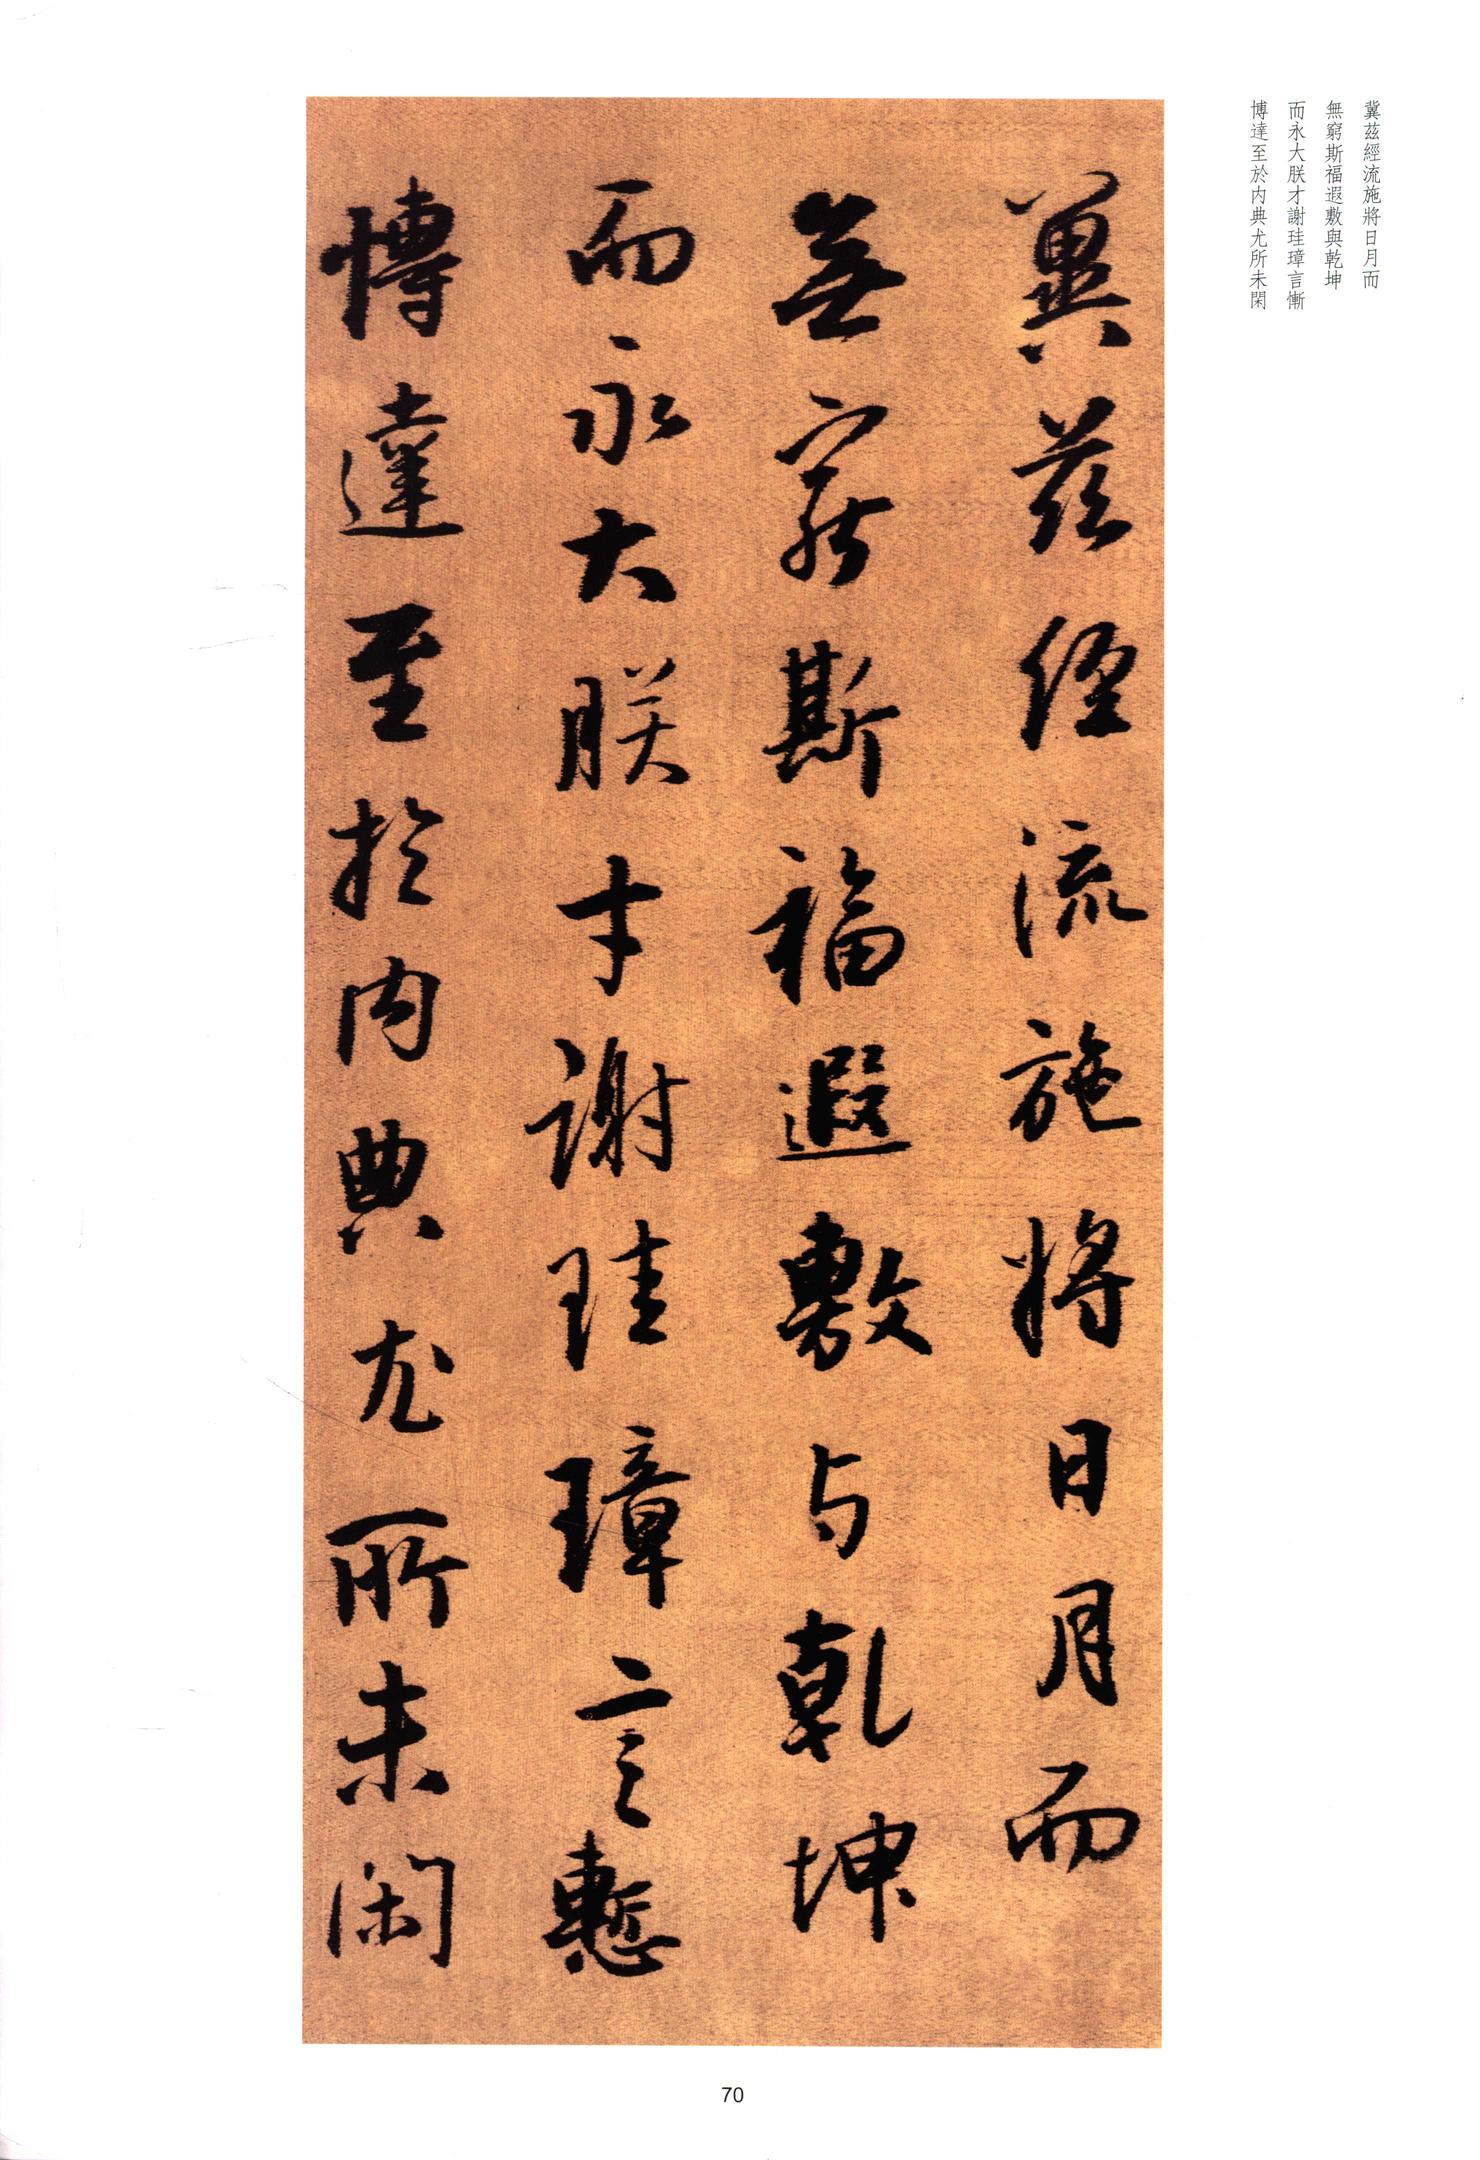 冀茲經流施將日月而
無窮斯福遐敷與乾坤
而永大朕才謝珪璋言慚
博達至於內典尤所未閑
冀茲經流施將日月而
無窮斯福遐敷与乾坤
而永大朕才謝珪璋言慙
博達至於內典尤所未閑
70